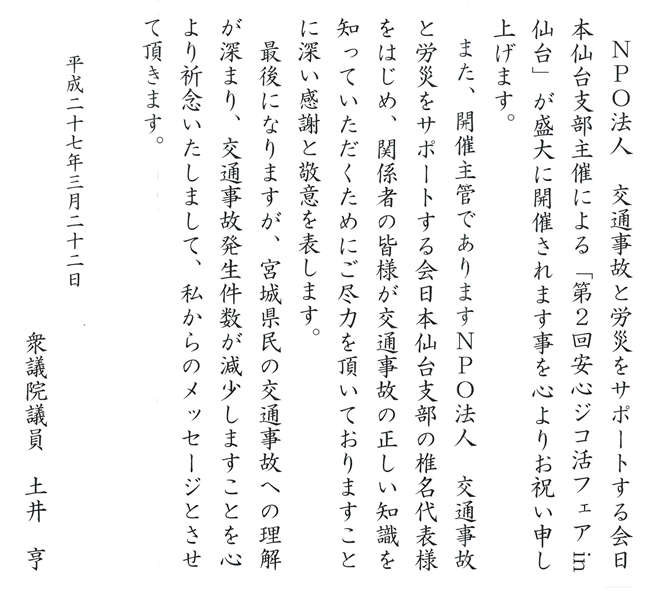 ＮＰＯ法人　交通事故と労災をサポートする会日
本仙台支部主催による「第２回安心ジコ活フェア in
仙台」が盛大に開催されます事を心よりお祝い申し
上げます。
　また、開催主管でありますＮＰＯ法人　交通事故
と労災をサポートする会日本仙台支部の椎名代表様
をはじめ、関係者の皆様が交通事故の正しい知識を
知っていただくためにご尽力を頂いておりますこと
に深い感謝と敬意を表します。
　最後になりますが、宮城県民の交通事故への理解
が深まり、交通事故発生件数が減少しますことを心
より祈念いたしまして、私からのメッセージとさせ
て頂きます。
平成二十七年三月二十二日
衆議院議員　土井　亨